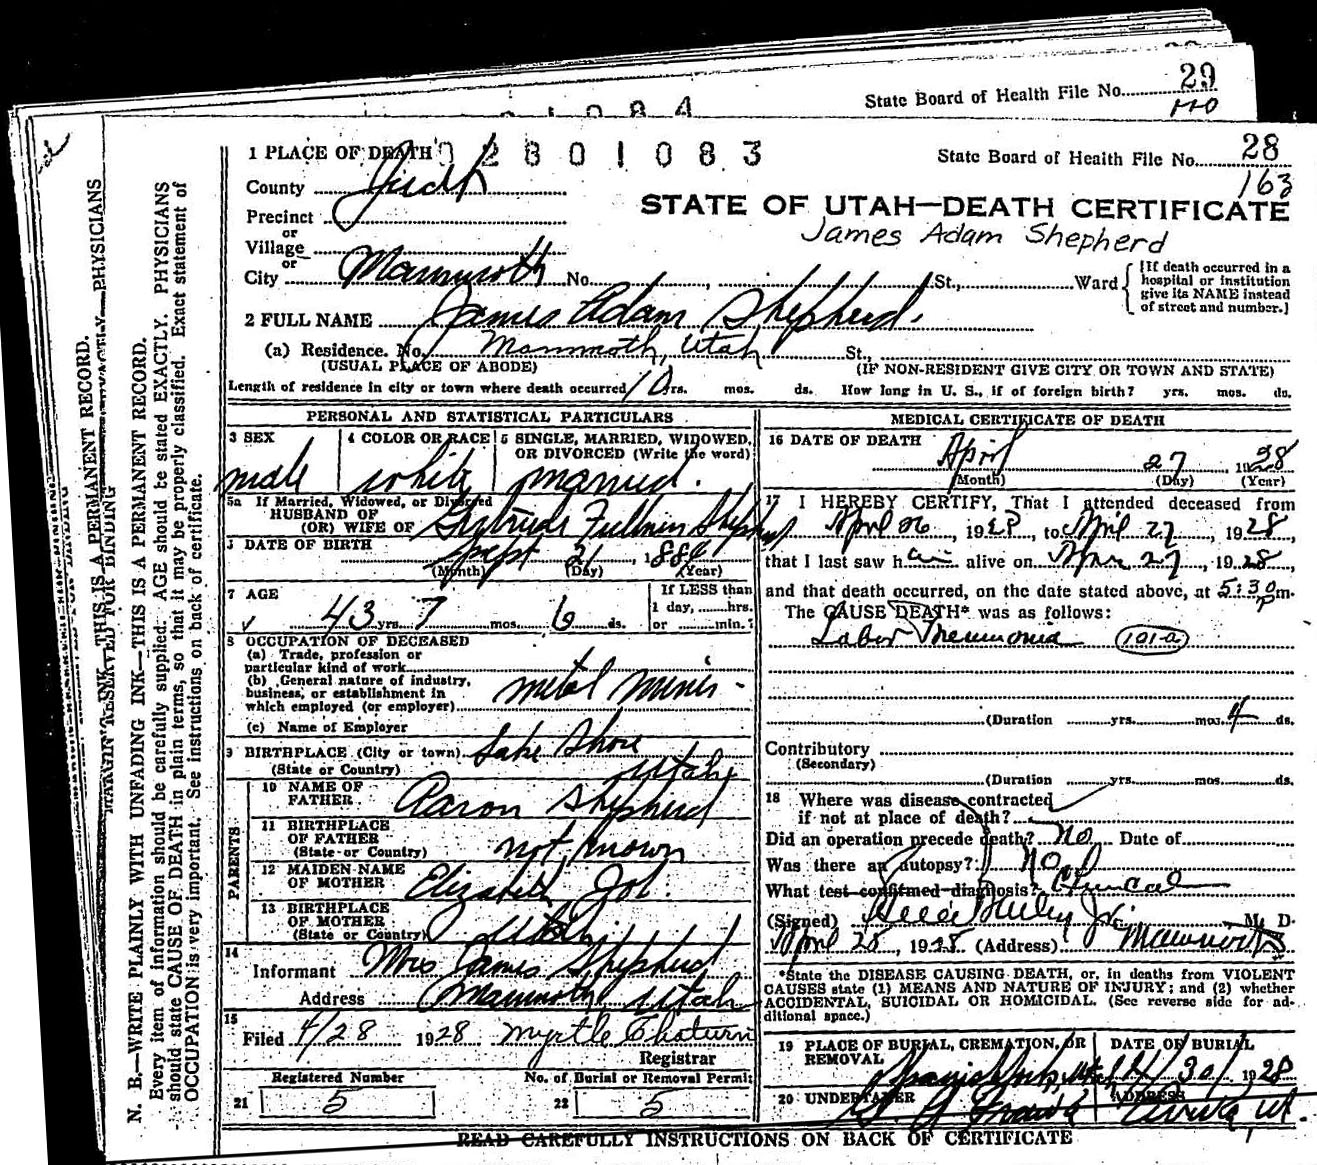 29
State Board of Health File No.
110
1084
1 PLACE OF DEATH
02801083
State Board of Health File No. 28
163
County Juab
STATE OF UTAH—DEATH CERTIFICATE
Precinct
James Adam Shepherd
or
Village
or
City Mammoth No. , St., Ward
[If death occurred in a
hospital or institution
give its NAME instead
of street and number.]
2 FULL NAME James Adam Shepherd.
(a) Residence. No. Mammoth, Utah St.,
(USUAL PLACE OF ABODE) (IF NON-RESIDENT GIVE CITY OR TOWN AND STATE)
Length of residence in city or town where death occurred 10 yrs. mos. ds. How long in U. S., if of foreign birth? yrs. mos. ds.
PERSONAL AND STATISTICAL PARTICULARS
3 SEX
male
4 COLOR OR RACE
white
5 SINGLE, MARRIED, WIDOWED,
OR DIVORCED (Write the word)
married.
5a If Married, Widowed, or Divorced
HUSBAND OF
(OR) WIFE OF Gertrude Fullmer Shepherd
DATE OF BIRTH
Sept 21, 188
(Month) (Day) (Year)
7 AGE
43 yrs. 7 mos. 6 ds.
If LESS than
1 day, hrs.
or min.?
8 OCCUPATION OF DECEASED
(a) Trade, profession or
particular kind of work
(b) General nature of industry,
business, or establishment in
which employed (or employer) metal mines
(c) Name of Employer
9 BIRTHPLACE (City or town) Lake Shore
(State or Country) Utah
PARENTS
10 NAME OF
FATHER Aaron Shepherd
11 BIRTHPLACE
OF FATHER
(State or Country) not known
12 MAIDEN NAME
OF MOTHER Elizabeth
13 BIRTHPLACE
OF MOTHER
(State or Country) Utah
14
Informant Mrs James Shepherd
Address Mammoth Utah
15
Filed 4/28 1928 Myrtle
Registrar
Registered Number
21 5
No. of Burial or Removal Permit
22 5
MEDICAL CERTIFICATE OF DEATH
16 DATE OF DEATH
April 27, 1928
(Month) (Day) (Year)
17 I HEREBY CERTIFY, That I attended deceased from
April 26, 1928, to April 27, 1928,
that I last saw him alive on 27, 1928,
and that death occurred, on the date stated above, at 5:30 pm.
The CAUSE DEATH* was as follows:
Lobar Pneumonia 101-a
(Duration yrs. mos. 4 ds.
Contributory
(Secondary)
(Duration yrs. mos. ds.
18 Where was disease contracted
if not at place of death?
Did an operation precede death? No Date of
Was there an autopsy? No
What test confirmed diagnosis? Clinical
(Signed) Jr. M. D.
April 28, 1928 (Address) Mammoth
*State the DISEASE CAUSING DEATH, or, in deaths from VIOLENT
CAUSES state (1) MEANS AND NATURE OF INJURY; and (2) whether
ACCIDENTAL, SUICIDAL OR HOMICIDAL. (See reverse side for ad-
ditional space.)
19 PLACE OF BURIAL, CREMATION, OR
REMOVAL
Spanish Fork, Utah
DATE OF BURIAL
4/30/ 1928
20 UNDERTAKER
ADDRESS
Eureka, Ut.
READ CAREFULLY INSTRUCTIONS ON BACK OF CERTIFICATE
MARGIN RESERVED FOR BINDING
N. B.—WRITE PLAINLY WITH UNFADING INK—THIS IS A PERMANENT RECORD.
Every item of information should be carefully supplied. AGE should be stated EXACTLY. PHYSICIANS
should state CAUSE OF DEATH in plain terms, so that it may be properly classified. Exact statement of
OCCUPATION is very important. See instructions on back of certificate.